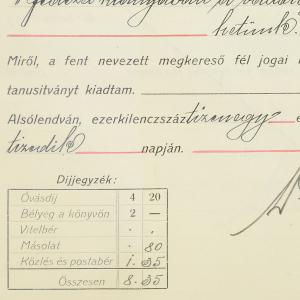 hetünk.
Miről, a fent nevezett megkereső fél jogai
tanusitványt kiadtam.
Alsólendván, ezerkilenczszáztizenegy
tizedik napján.
Díjjegyzék:
Óvásdíj 4 20
Bélyeg a könyvön 2 —
Vitelbér . .
Másolat . 80
Közlés és postabér 1. 35
Összesen 8. 35